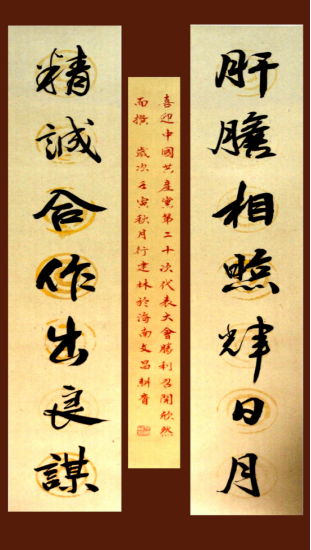 肝膽相照輝日月
喜迎中國共產黨第二十次代表大會勝利召開欣然
而撰 歲次壬寅秋月行建林於海南文昌耕齋
精誠合作出良謀